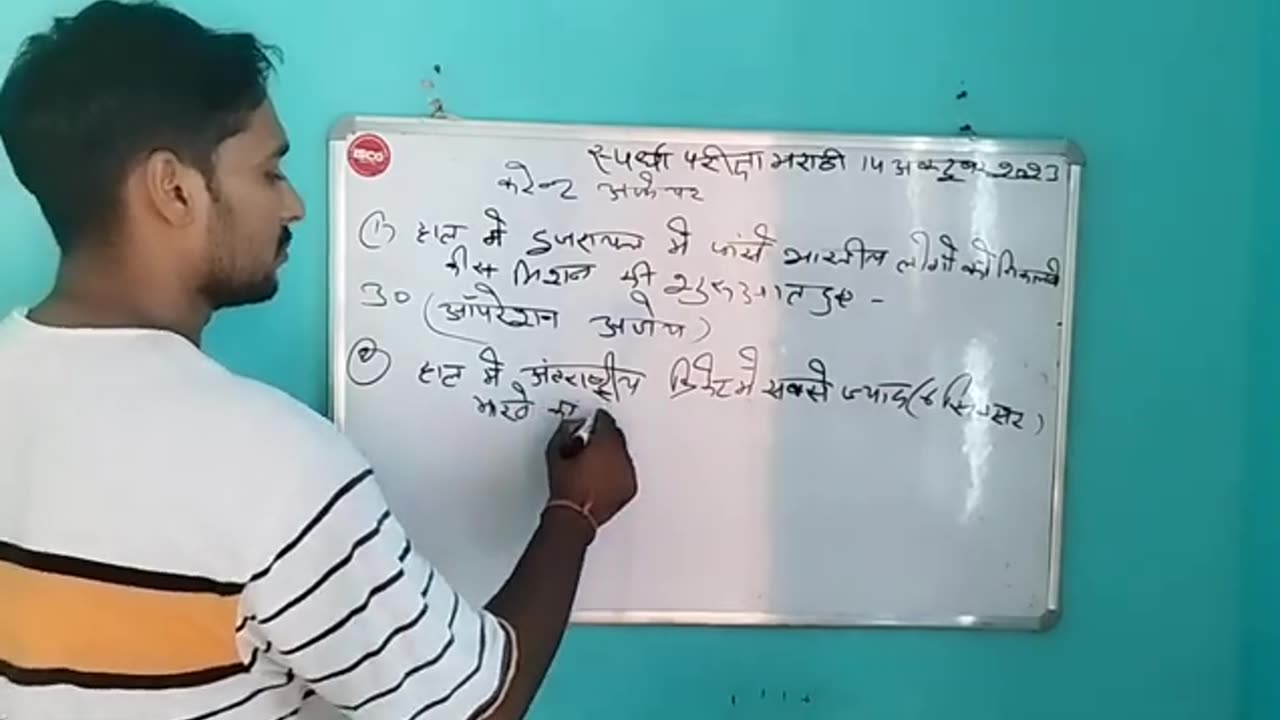 स्पर्धा परीक्षा मराठी 14 अक्टूबर 2023
करेन्ट अफेयर
(1) हाल में इजरायल में फांसे भारतीय लोगों को निकालने
कीस मिशन की शुरुआत हुई -
उ० (ऑपरेशन अजेय)
(2) हाल में अंतराष्ट्रीय क्रिकेट में सबसे ज्यादा (6 सिक्सर)
मारने का